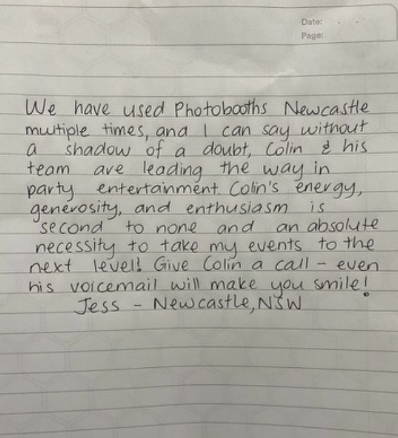 Date: . .
Page:
We have used Photobooths Newcastle
multiple times, and I can say without
a shadow of a doubt, Colin & his
team are leading the way in
party entertainment. Colin's energy,
generosity, and enthusiasm is
second to none and an absolute
necessity to take my events to the
next level! Give Colin a call - even
his voicemail will make you smile!
Jess - Newcastle, NSW